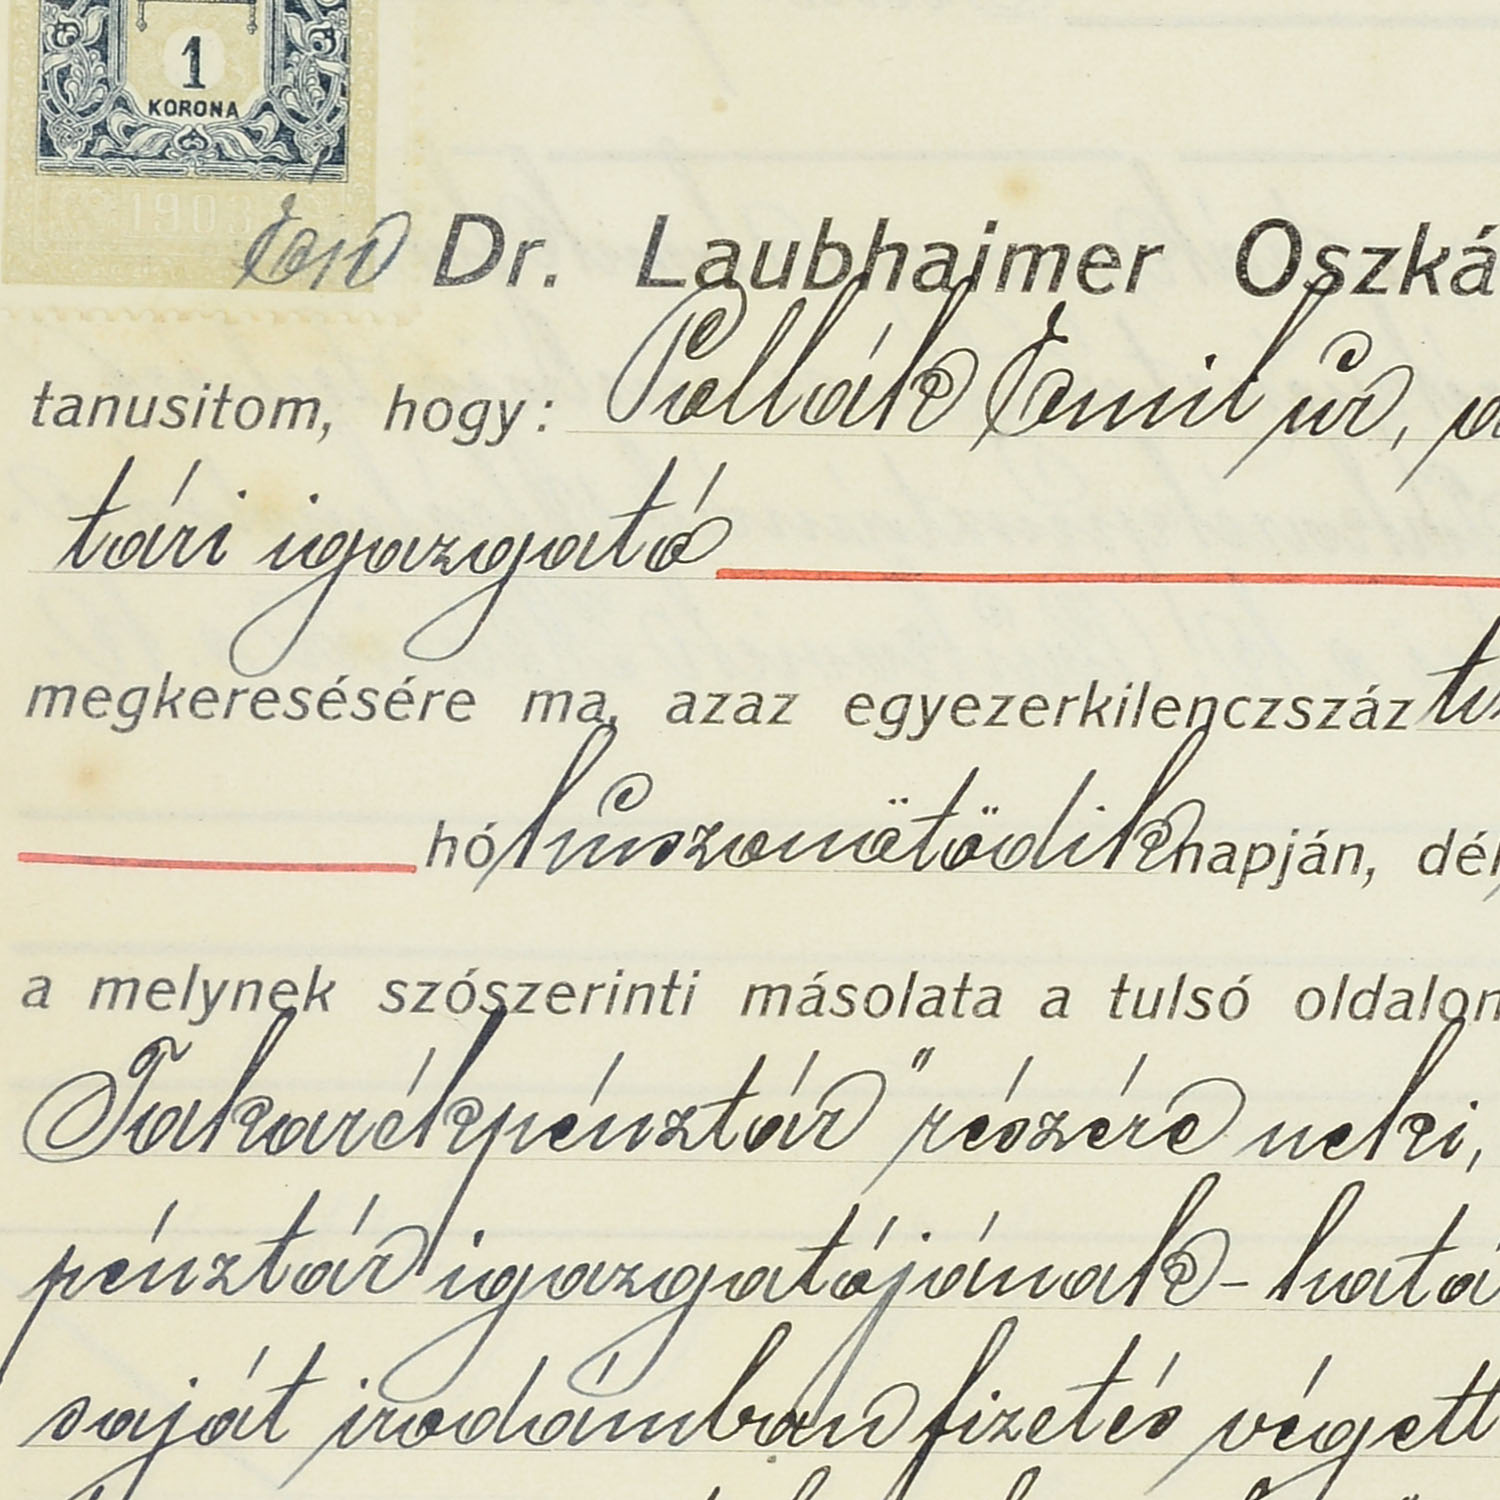 1
KORONA
1903
Én Dr. Laubhaimer Oszká
tanusitom, hogy: Pollák Emil úr, a
tári igazgató
megkeresésére ma, azaz egyezerkilenczszáz
hó huszonötödik napján, dél
a melynek szószerinti másolata a tulsó oldalon
Takarékpénztár" részére neki,
pénztár igazgatójának - hatá
saját irodámban fizetés végett